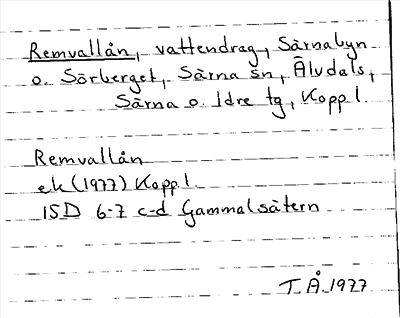 Remvallån, vattendrag, Särnabyn
o. Sörberget, Särna sn, Älvdals,
Särna o. Idre tg, Kopp l.
Remvallån
ek (1977) Kopp l.
ISD 6-7 c-d Gammalsätern
T.Å. 1977